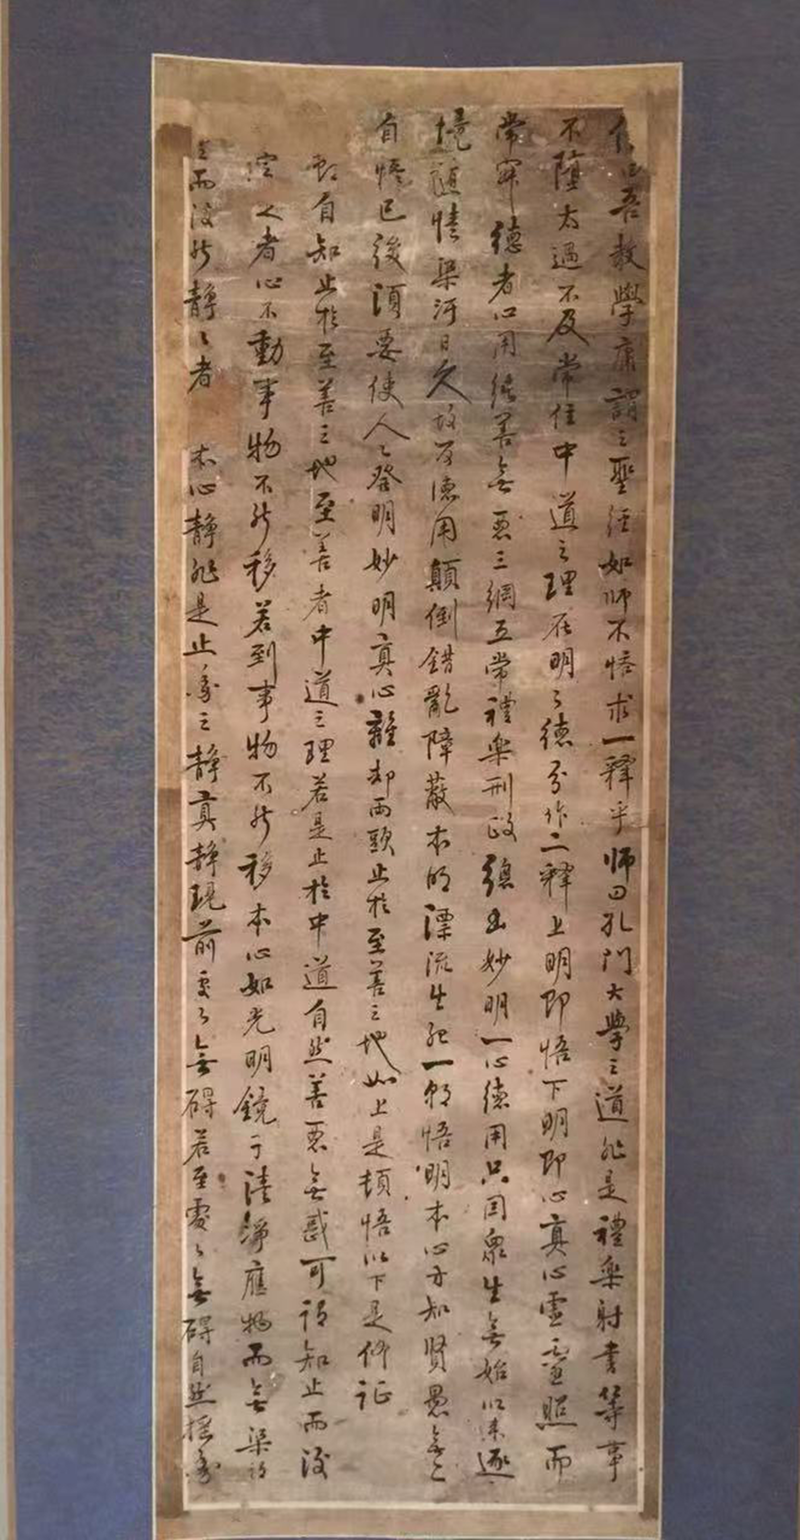 吾教學庸謂之聖經如師不悟求一釋乎師曰孔門大學之道非是禮樂射書等事
不墮太過不及常住中道之理在明々德分作二釋上明即悟下明即心真心靈靈照而
常寂德者心用純善無惡三綱五常禮樂刑政總出妙明一心德用只因衆生無始以來逐
境隨情染污日久故乃德用顛倒錯亂障蔽本明漂流生死一朝悟明本心方知賢愚無二
自悟已後須要使人々發明妙明真心離却兩頭止於至善之地如上是頓悟以下是修證
自知止於至善之地至善者中道之理若是止於中道自然善惡無惑可謂知止而後
定人者心不動事物不能移若到事物不能移本心如光明鏡子清淨應物而無染
定而後能靜々者本心靜非是止動之靜真靜現前處々無碍若至處々無碍自然搖動